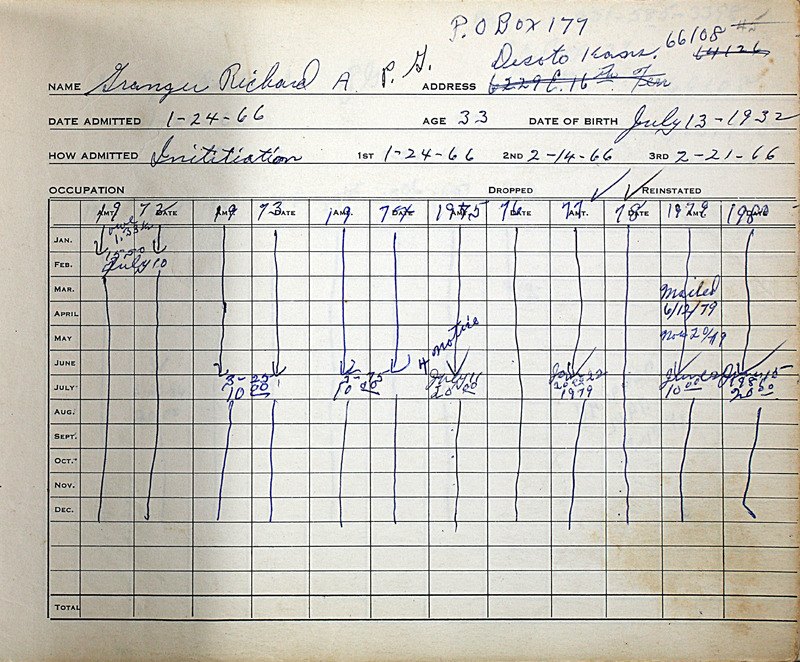 P.O Box 177
Desoto Kans, 66108
64126
NAME Granger Richard A P. G. ADDRESS 6229 E. 16th Terr
DATE ADMITTED 1-24-66 AGE 33 DATE OF BIRTH July 13-1932
HOW ADMITTED Inititiation 1ST 1-24-66 2ND 2-14-66 3RD 2-21-66
OCCUPATION DROPPED REINSTATED
AMT. DATE AMT. DATE AMT. DATE AMT. DATE AMT. DATE AMT. DATE
19 72 19 73 19 1975 76 77 78 1979 1980
JAN.
FEB. July 10
MAR. Mailed
APRIL 6/12/79
MAY
4 notice
JUNE
JULY 10 00 10 00 20 00 1979 10 00 20 00
AUG.
SEPT.
OCT.
NOV.
DEC.
TOTAL